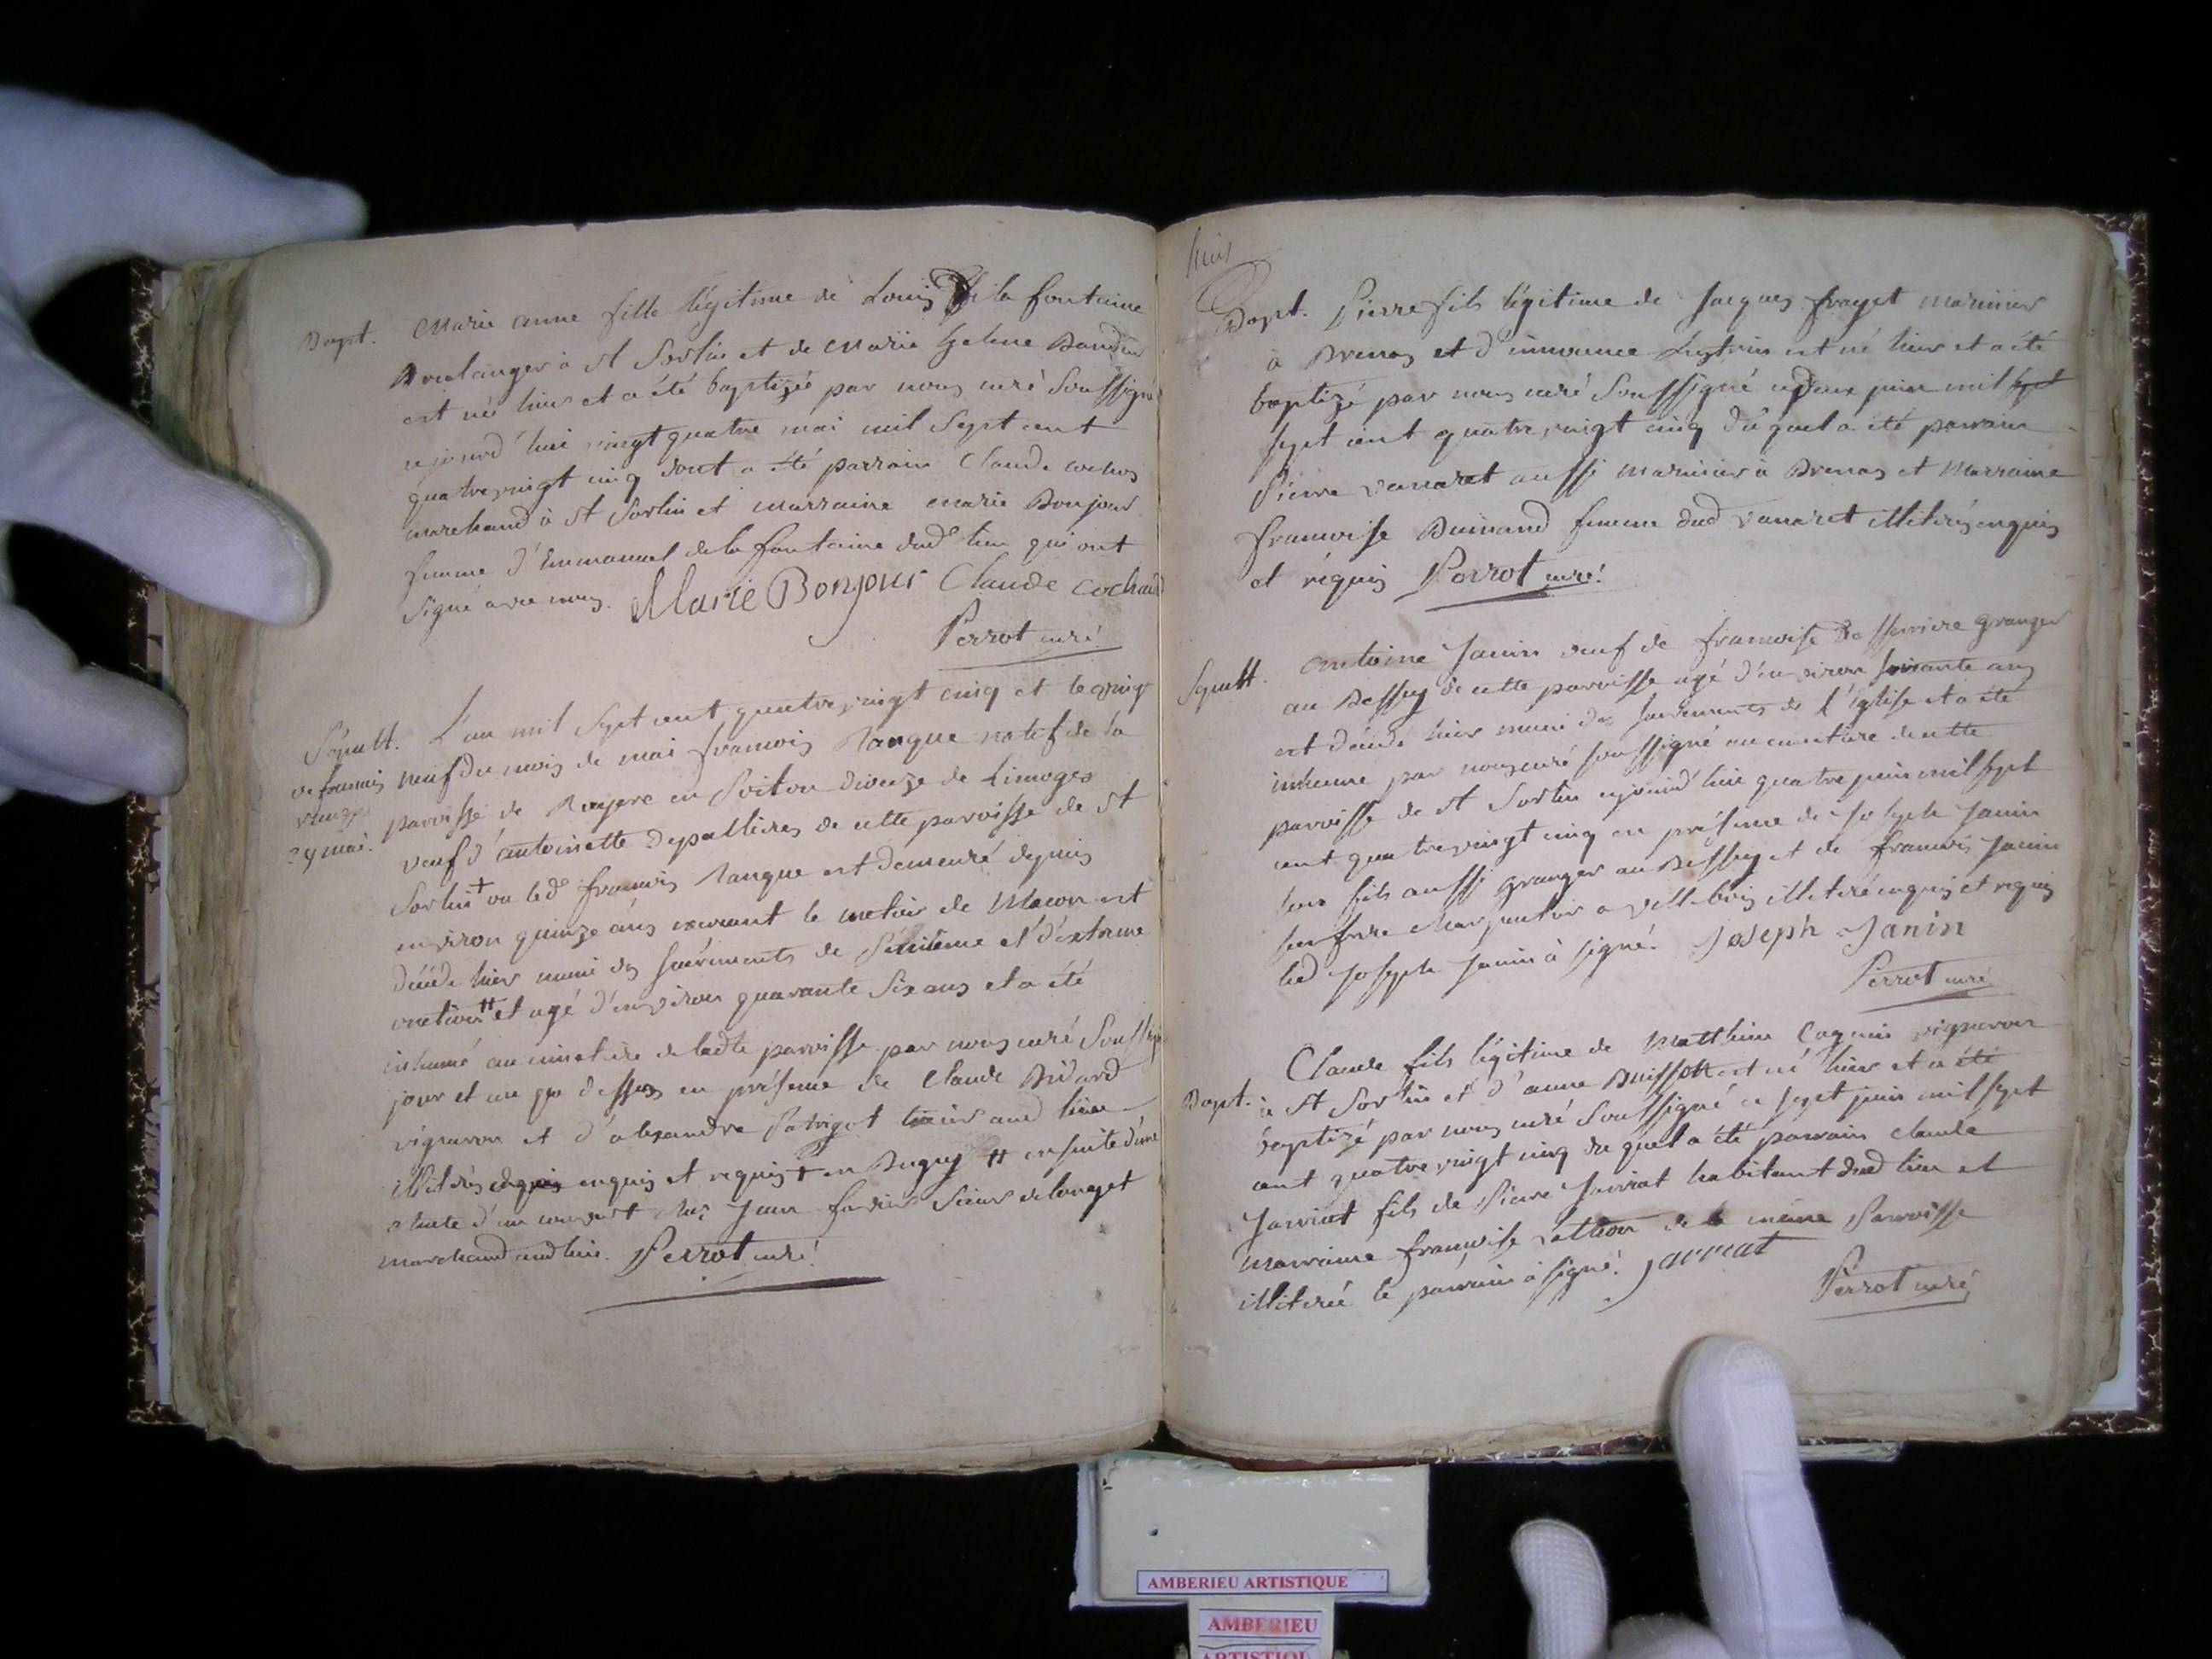 Bapt. Marie anne fille légitime de Louis de la fontaine
Boulanger à st Sorlin et de Marie helene Baudin
est née hier et a été baptizée par nous curé soussigné
cejourd'hui vingt quatre mai mil sept cent
quatrevingt cinq dont a été parrain Claude cochos
marchand à st Sorlin et marraine marie Bonjour
femme d'Emmanuel de la fontaine dud lieu qui ont
signé avec nous. Marie Bonjour Claude cochard
Perrot curé
Sépult. L'an mil sept cent quatrevingt cinq et le vingt
de francois neuf du mois de mai francois Rangue natif de la
29 mai. paroisse de Royere en Poitou dioceze de Limoges
veuf d'antoinette depallieres de cette paroisse de st
Sorlin + ou led francois Rangue est demeuré depuis
environ quinze ans exercant le metier de Macon est
décédé hier muni des sacréments de Pénitence et d'extreme
onction # et agé d'environ quarante six ans et a été
inhumé au cimetiere de ladte paroisse par nous curé soussigné
jour et an que dessus en présence de Claude Bidard
vigneron et d'alexandre Patrigot aud lieu
illiterés enquis enquis et requis + en Bugey # ensuite d'une
chute d'un couvert chez Jean Sieur de longet
marchand aud lieu. Perrot curé
huit
Bapt. Pierre fils légitime de Jacques frayet marinier
à Brenas et d'innocence est né hier et a été
baptizé par nous curé soussigné ce deux juin mil sept
sept cent quatre vingt cinq du quel a été parrain
Pierre vanaret aussi marinier à Brenas et Marraine
francoise Buinand femme dud vanaret illiterés enquis
et réquis Perrot curé
Sépult. antoine Janin veuf de francoise granger
au Bessey de cette paroisse agé d'environ soixante ans
est décédé hier muni des sacrements de l'église et a été
inhumé par nous curé soussigné au cimetiere de cette
paroisse de st Sorlin cejourd'hui quatre juin mil sept
cent quatrevingt cinq en présence de Joseph Janin
son fils aussi granger au Bessey et de francois Janin
son frere charpentier a villebois illiteré enquis et requis
led Joseph Janin à signé. Joseph Janin
Perrot curé
Claude fils légitime de Matthieu Cognin vigneron
Bapt. à st Sorlin et d'anne Buisson est né hier et a été
baptizé par nous curé soussigné ce sept juin mil sept
cent quatre vingt cinq du quel a été parrain claude
Jarriat fils de Pierre Jarriat habitant dud lieu et
marraine francoise de la même Paroisse
illiterée le parrain à signé. jarriat
Perrot curé
AMBERIEU ARTISTIQUE
AMBERIEU
ARTISTIQUE